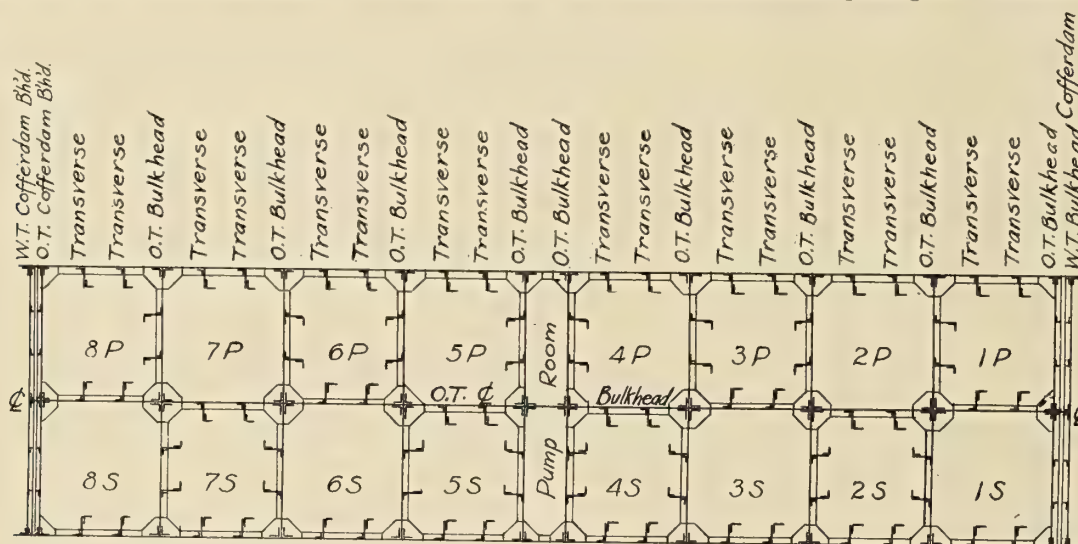 W.T. Cofferdam Bhd.
O.T. Cofferdam B'h'd.
Transverse
Transverse
O.T. Bulkhead
Transverse
Transverse
O.T. Bulkhead
Transverse
Transverse
O.T. Bulkhead
Transverse
Transverse
O.T. Bulkhead
O.T. Bulkhead
Transverse
Transverse
O.T. Bulkhead
Transverse
Transverse
O.T. Bulkhead
Transverse
Transverse
O.T. Bulkhead
Transverse
Transverse
O.T. Bulkhead
W.T. Bulkhead Cofferdam
8P 7P 6P 5P Room 4P 3P 2P 1P
℄ O.T. ℄ Bulkhead
8S 7S 6S 5S Pump 4S 3S 2S 1S